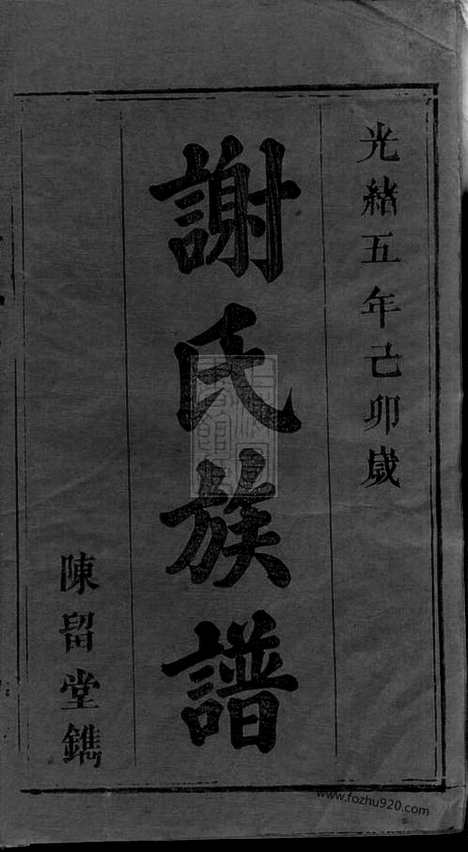 光緒五年己卯歲
謝氏族譜
陳留堂鐫
www.fozhu920.com